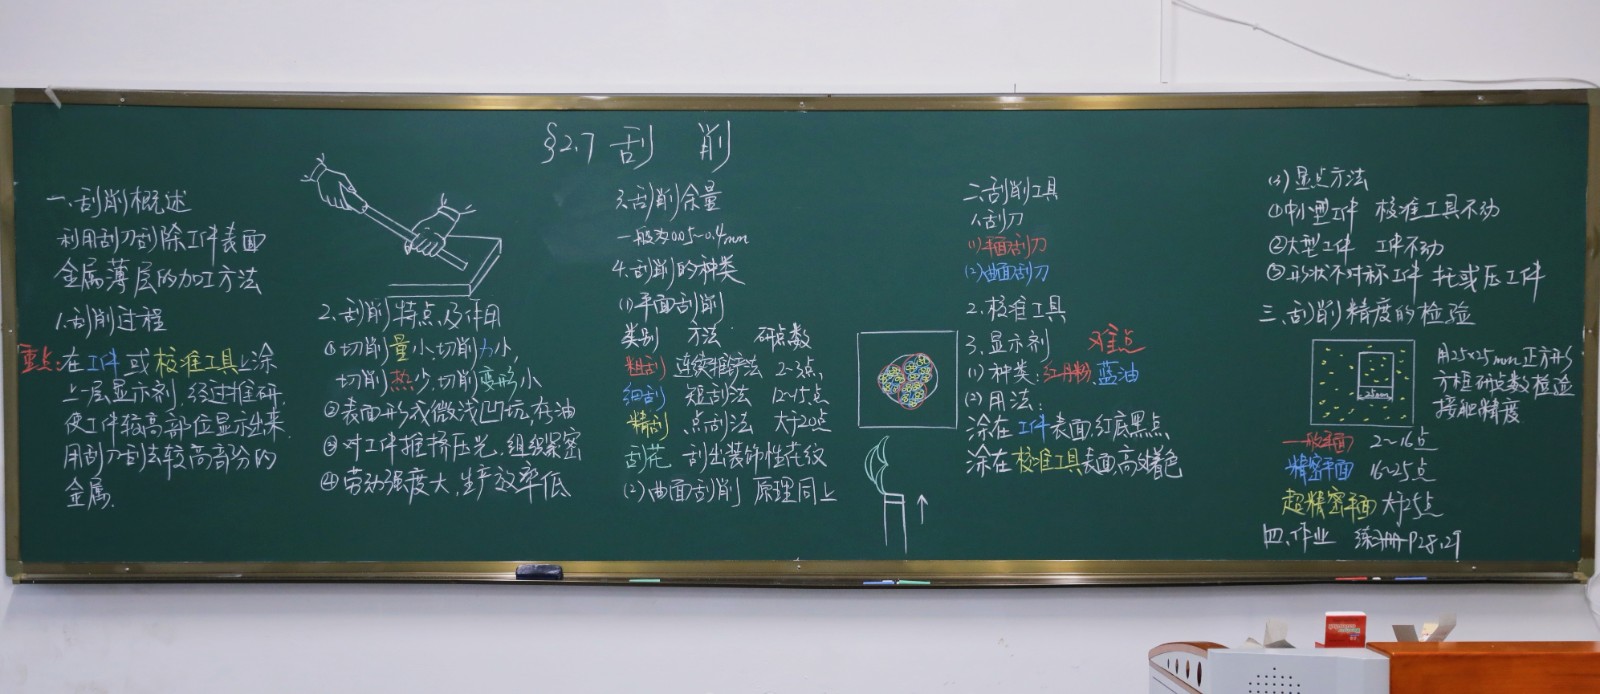 §2.7 刮 削
一.刮削概述
利用刮刀刮除工件表面
金属薄层的加工方法
1.刮削过程
重点:在工件或校准工具上涂
上一层显示剂,经过推研,
使工件较高部位显示出来,
用刮刀刮去较高部分的
金属.
2.刮削特点及作用
①切削量小,切削力小,
切削热少,切削变形小
②表面形成微浅凹坑,存油
③对工件推挤压光,组织紧密
④劳动强度大,生产效率低
3.刮削余量
一般为0.05~0.4mm
4.刮削的种类
(1)平面刮削
类别 方法 研点数
粗刮 连续推铲法 2~3点
细刮 短刮法 12~15点
精刮 点刮法 大于20点
刮花 刮出装饰性花纹
(2)曲面刮削 原理同上
二.刮削工具
1.刮刀
(1)平面刮刀
(2)曲面刮刀
2.校准工具
3.显示剂 难点
(1)种类:红丹粉,蓝油
(2)用法:
涂在工件表面,红底黑点
涂在校准工具表面,高处着色
(3)显点方法
①中小型工件 校准工具不动
②大型工件 工件不动
③形状不对称工件 托或压工件
三.刮削精度的检验
用25×25mm正方形
方框研点数检验
接触精度
25mm
一般平面 2~16点
精密平面 16~25点
超精密平面 大于25点
四.作业 练习册P28,29